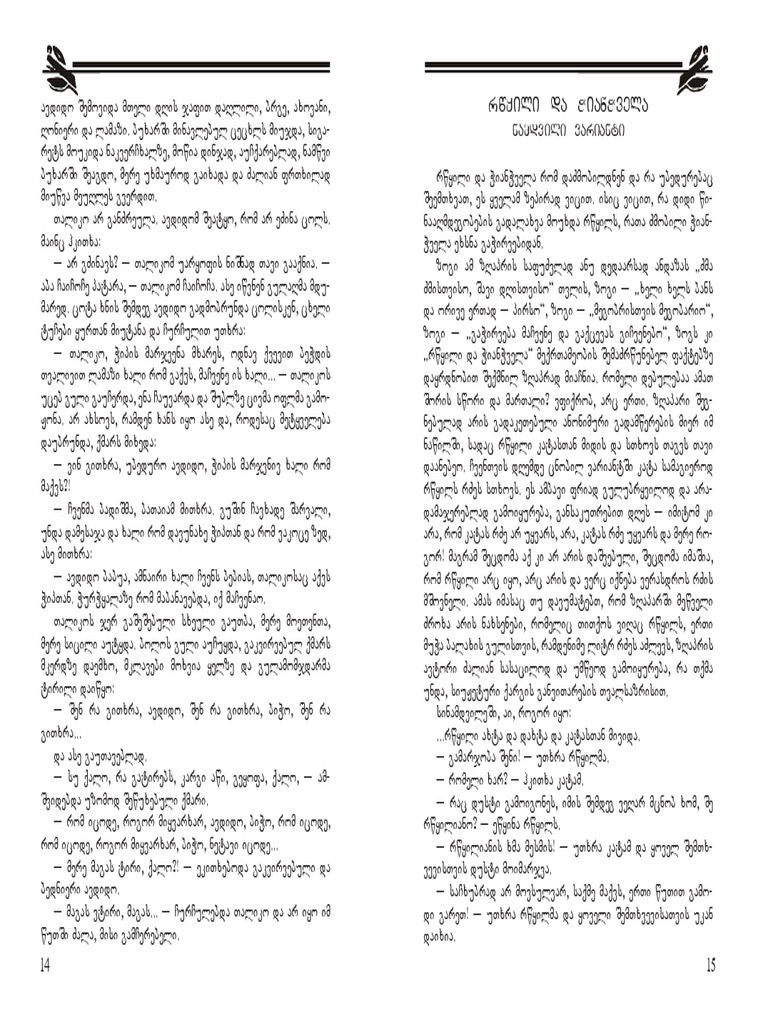 ავდიდო შემოვიდა მთელი დღის ჯაფით დაღლილი, ბრგე, ახოვანი,
ღონიერი და ლამაზი. ბუხარში მინავლებულ ცეცხლს მიუჯდა, სიგა-
რეტს მოუკიდა ნაკვერჩხალზე, მოწია დინჯად, აუჩქარებლად, ნამწვი
ბუხარში შეაგდო, მერე უხმაუროდ გაიხადა და ძალიან ფრთხილად
მიუწვა მეუღლეს გვერდით.
თალიკო არ განძრეულა. ავდიდომ შეატყო, რომ არ ეძინა ცოლს.
მაინც ჰკითხა:
– არ გძინავს? – თალიკომ უარყოფის ნიშნად თავი გააქნია. –
აბა ჩაიჩოჩე პატარა, – თალიკომ ჩაიჩოჩა. ასე იწვნენ გულაღმა მდუ-
მარედ. ცოტა ხნის შემდეგ ავდიდო გადმობრუნდა ცოლისკენ, ცხელი
ტუჩები ყურთან მიუტანა და ჩურჩულით უთხრა:
– თალიკო, ჭიპის მარჯვენა მხარეს, ოდნავ ქვევით ბეჭდის
თვალივით ლამაზი ხალი რომ გაქვს, მაჩვენე ის ხალი... – თალიკოს
უცებ გული გაუჩერდა, ენა ჩაუვარდა და შუბლზე ცივმა ოფლმა გამო-
ჟონა. არ ახსოვს, რამდენ ხანს იყო ასე და, როდესაც მეტყველება
დაუბრუნდა, ქმარს მიხედა:
– ვინ გითხრა, უბედურო ავდიდო, ჭიპის მარჯვნივ ხალი რომ
მაქვს?!
– ჩვენმა ბადიშმა, პათაიამ მითხრა. გუშინ ჩავხადე შარვალი,
უნდა დამესაჯა და ხალი რომ დავუნახე ჭიპთან და რომ ვაკოცე ზედ,
ასე მითხრა:
– ავდიდო ბაბუა, ამნაირი ხალი ჩვენს ბებიას, თალიკოსაც აქვს
ჭიპთან. ჭურჭყალაზე რომ მაბანავებდა, იქ მაჩვენაო.
თალიკოს ჯერ გაშეშებული სხეული გაუთბა, მერე მოეთენთა,
მერე სიცილი აუტყდა. ბოლოს გული აუჩუყდა, გაკვირვებულ ქმარს
მკერდზე დაემხო, მკლავები მოხვია ყელზე და გულამომჯდარმა
ტირილი დაიწყო:
– შენ რა გითხრა, ავდიდო, შენ რა გითხრა, ბიჭო, შენ რა
გითხრა...
და ასე გაუთავებლად.
– სუ ქალო, რა გატირებს, კარგი აწი, გეყოფა, ქალო, – ამ-
შვიდებდა უზომოდ შეწუხებული ქმარი.
– რომ იცოდე, როგორ მიყვარხარ, ავდიდო, ბიჭო, რომ იცოდე,
რომ იცოდე, როგორ მიყვარხარ, ბიჭო, ნეტავი იცოდე...
– მერე მაგას ტირი, ქალო?! – ეკითხებოდა გაკვირვებული და
ბედნიერი ავდიდო.
– მაგას ვტირი, მაგას... – ჩურჩულებდა თალიკო და არ იყო იმ
წუთში ძალა, მისი გამჩერებელი.
14
რწყილი და ჭიანჭველა
ნამდვილი ვარიანტი
რწყილი და ჭიანჭველა რომ დაძმობილდნენ და რა უბედურებაც
შეემთხვათ, ეს ყველამ ზეპირად ვიცით. ისიც ვიცით, რა დიდი წი-
ნააღმდეგობების გადალახვა მოუხდა რწყილს, რათა ძმობილი ჭიან-
ჭველა ეხსნა გაჭირვებიდან.
ზოგი ამ ზღაპრის საფუძვლად ანუ დედაარსად ანდაზას „ძმა
ძმისთვისო, შავი დღისთვისო“ თვლის, ზოგი – „ხელი ხელს ბანს
და ორივე ერთად – პირსო“, ზოგი – „მეგობრისთვის მეგობარიო“,
ზოგი – „გაჭირვება მაჩვენე და გაქცევას გიჩვენებო“, ზოგს კი
„რწყილი და ჭიანჭველა“ მექრთამეობის შემაძრწუნებელ ფაქტებზე
დაყრდნობით შექმნილ ზღაპრად მიაჩნია. რომელი დებულებაა ამათ
შორის სწორი და მართალი? ვფიქრობ, არც ერთი. ზღაპარი შეგ-
ნებულად არის გადაკეთებული ანონიმური გადამწერების მიერ იმ
ნაწილში, სადაც რწყილი კატასთან მიდის და სთხოვს თაგვს თავი
დაანებეო. ჩვენთვის დღემდე ცნობილ ვარიანტში კატა სამაგიეროდ
რწყილს რძეს სთხოვს. ეს ამბავი ფრიად გულუბრყვილოდ და არა-
დამაჯერებლად გამოიყურება, განსაკუთრებით დღეს – იმიტომ კი
არა, რომ კატას რძე არ უყვარს, არა, კატას რძე უყვარს და მერე რო-
გორ! მაგრამ შეცდომა აქ კი არ არის დაშვებული, შეცდომა იმაშია,
რომ რწყილი არც იყო, არც არის და ვერც იქნება ვერასდროს რძის
მშოვნელი. ამას იმასაც თუ დავუმატებთ, რომ ზღაპარში მეწველი
ძროხა არის ნახსენები, რომელიც თითქოს ვიღაც რწყილს, ერთი
მუჭა ბალახის გულისთვის, რამდენიმე ლიტრ რძეს აძლევს, ზღაპრის
ავტორი ძალიან სასაცილოდ და უმწეოდ გამოიყურება, რა თქმა
უნდა, სიუჟეტური ქარგის განვითარების თვალსაზრისით.
სინამდვილეში, აი, როგორ იყო:
...რწყილი ახტა და დახტა და კატასთან მივიდა.
– გამარჯობა შენი! – უთხრა რწყილმა.
– რომელი ხარ? – ჰკითხა კატამ.
– რაც დუსტი გამოიგონეს, იმის შემდეგ ვეღარ მცნობ ხომ, შე
რწყილიანო? – ეწყინა რწყილს.
– რწყილიანის ხმა მესმის! – უთხრა კატამ და ყოველ შემთხ-
ვევისთვის დუსტი მოიმარჯვა.
– საჩხუბრად არ მოვსულვარ, საქმე მაქვს, ერთი წუთით გამო-
დი გარეთ! – უთხრა რწყილმა და ყოველი შემთხვევისათვის უკან
დაიხია.
15